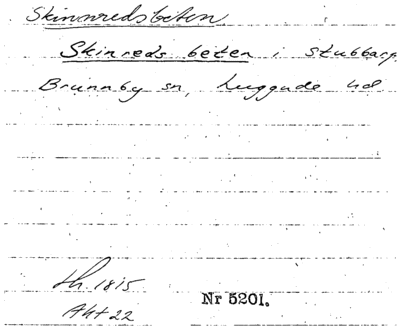 Skinnredsbeten
Skinreds beten i stubbarp
Brunnby sn, Luggude hd
th. 1815
Akt 22
Nr 5201.